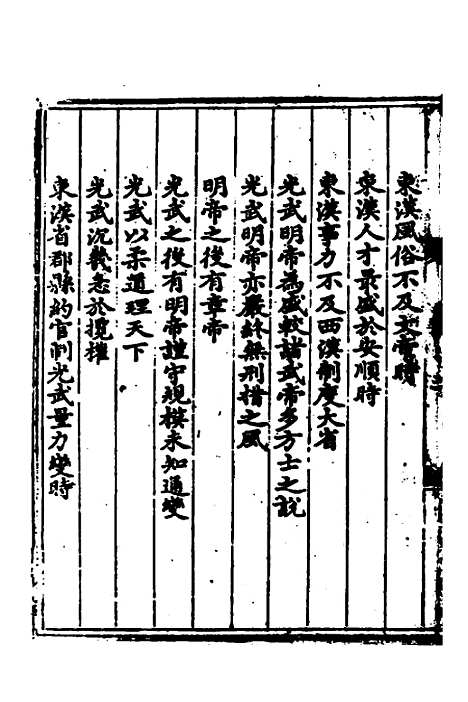 東漢風俗不及文帝時
東漢人才最盛於安順時
東漢事力不及西漢制度大省
光武明帝為盛較諸武帝多方士之說
光武明帝亦嚴終無刑措之風
明帝之後有章帝
光武之後有明帝謹守規模未知通變
光武以柔道理天下
光武沉幾志於攬權
東漢省郡縣約官制光武量力變時